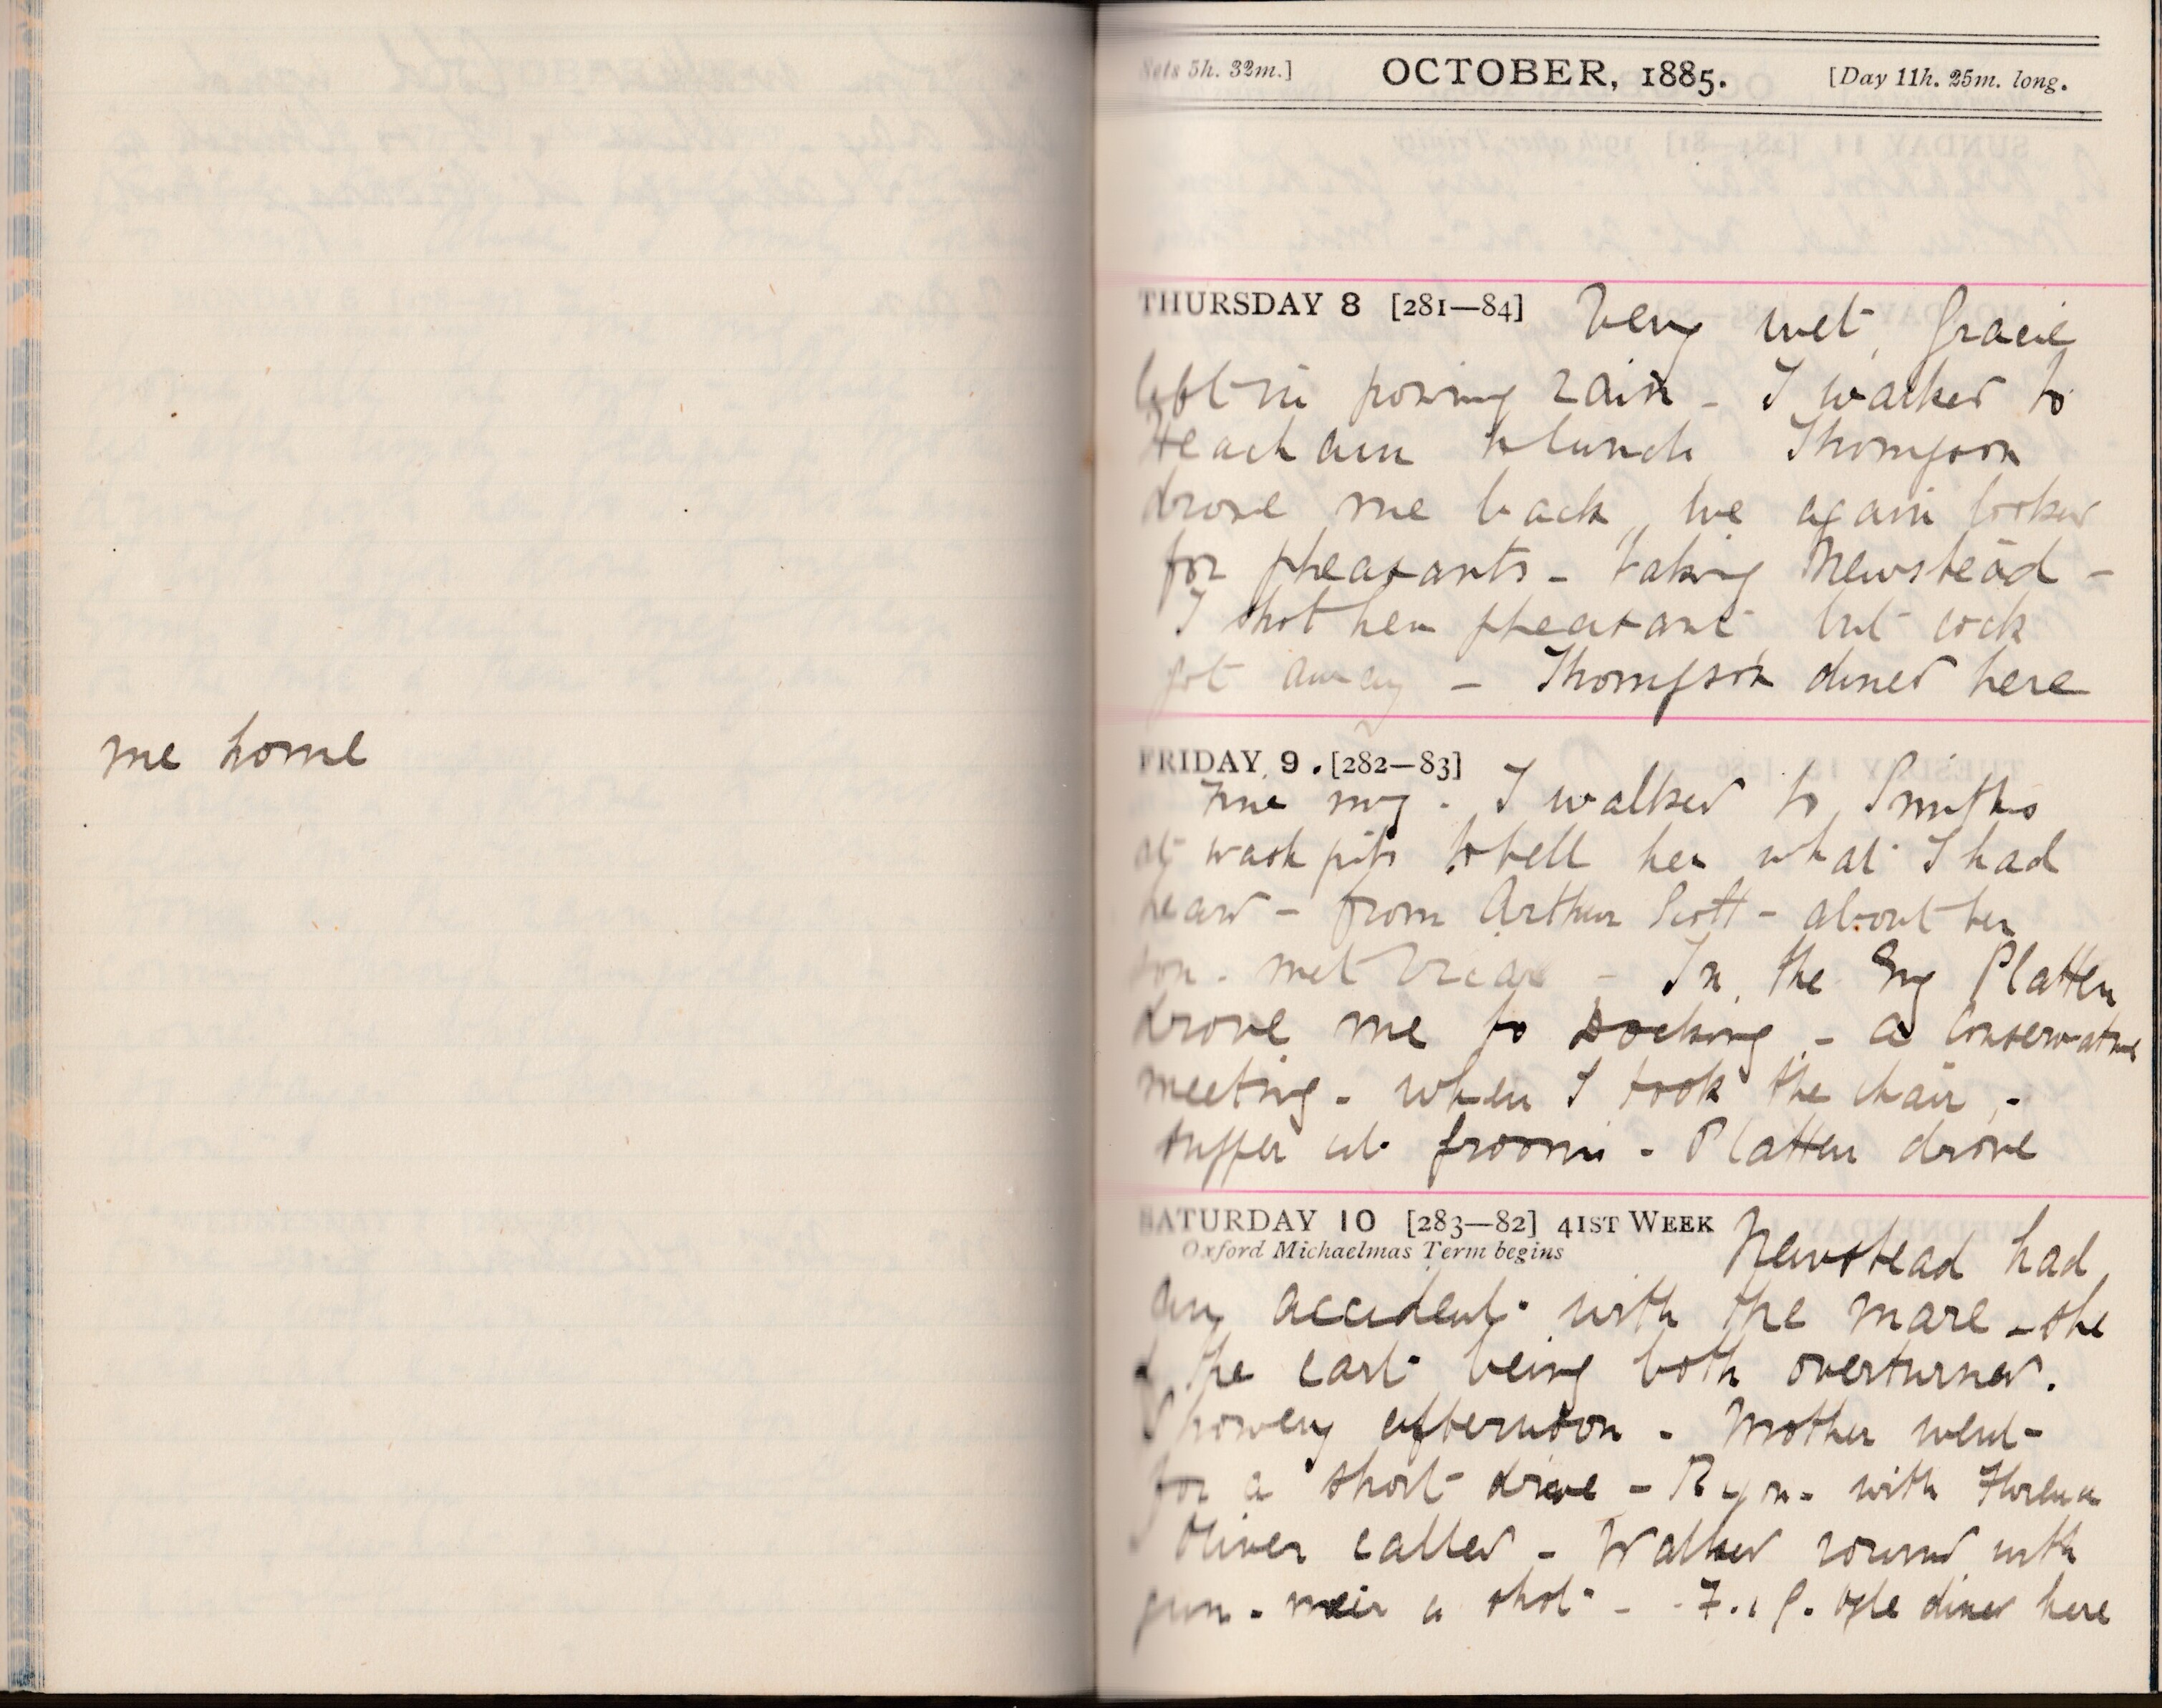 me home
Sets 5h. 32m.] OCTOBER, 1885. [Day 11h. 25m. long.
THURSDAY 8 [281—84] Very wet, Gracie
left in pouring rain - I walked to
Heacham to lunch Thompson
drove me back, we again looked
for pheasants - taking Newstead -
I shot hen pheasant but cock
got away - Thompson dined here
FRIDAY 9. [282—83]
Fine mg. I walked to Smiths
at wash pits to tell her what I had
heard - from Arthur Scott - about her
son. met Vicar - In the Eng Platten
drove me to Docking - a Conservative
meeting - when I took the chair, -
supper at - Platten drove
SATURDAY 10 [283—82] 41ST WEEK
Oxford Michaelmas Term begins Newstead had
an accident with the mare - she
& the cart being both overturned.
Showery afternoon - Mother went
for a short drive - with Florence
Oliver called - Walked round with
gun - a shot - F. & G. Ogle dined here